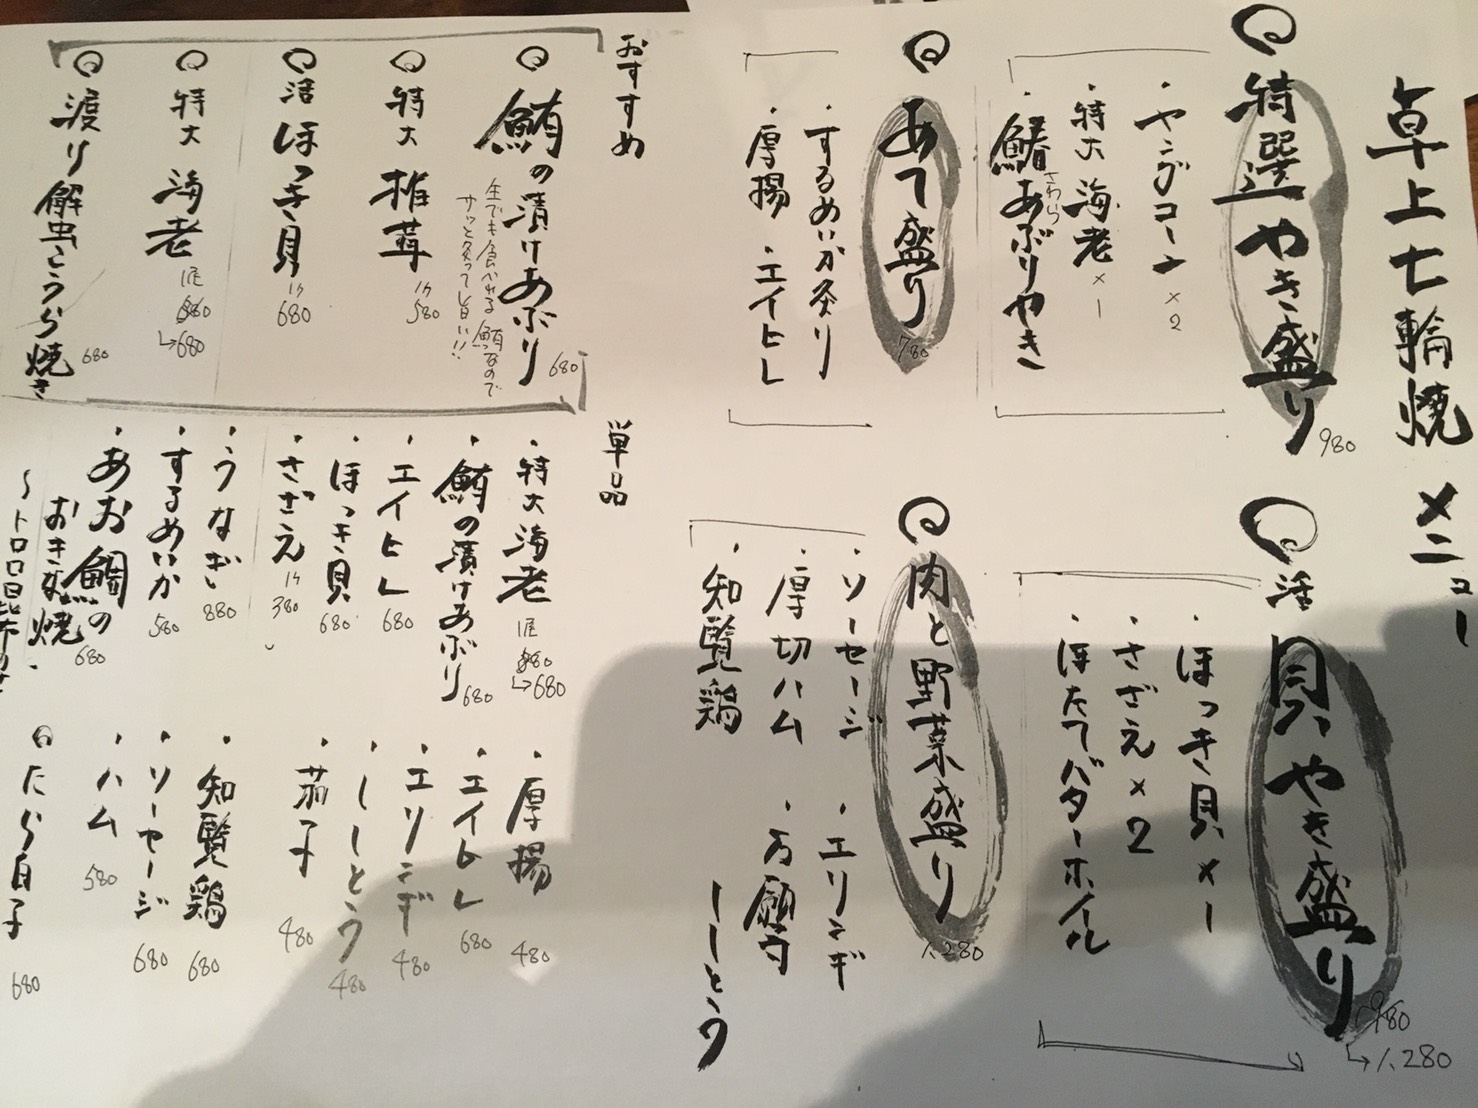 卓上七輪焼メニュー
特選やき盛り 980
・ヤングコーン×2
・特大海老×1
・鰆あぶりやき
さわら
活貝やき盛り 980
→1,280
・ほっき貝×1
・さざえ×2
・ほたてバターホイル
あて盛り 780
・するめいか炙り
・厚揚 ・エイヒレ
肉と野菜盛り 1,280
・ソーセージ ・エリンギ
・厚切ハム ・万願寺
・知覧鶏 ししとう
おすすめ
鮪の漬けあぶり 680
生でも食べれる鮪なので
サッと炙って旨い!!
特大椎茸 1ケ 580
活ほっき貝 1ケ 680
特大海老 1尾
→680
渡り蟹こうら焼き 680
単品
・特大海老 1尾
→680
・鮪の漬けあぶり 680
・エイヒレ 680
・ほっき貝 680
・さざえ 1ケ 380
・うなぎ 880
・するめいか 580
・あお鯛の
おき焼 680
・厚揚 480
・エイヒレ 680
・エリンギ 480
・ししとう 480
・茄子 480
・知覧鶏 680
・ソーセージ 680
・ハム 580
たら白子 680